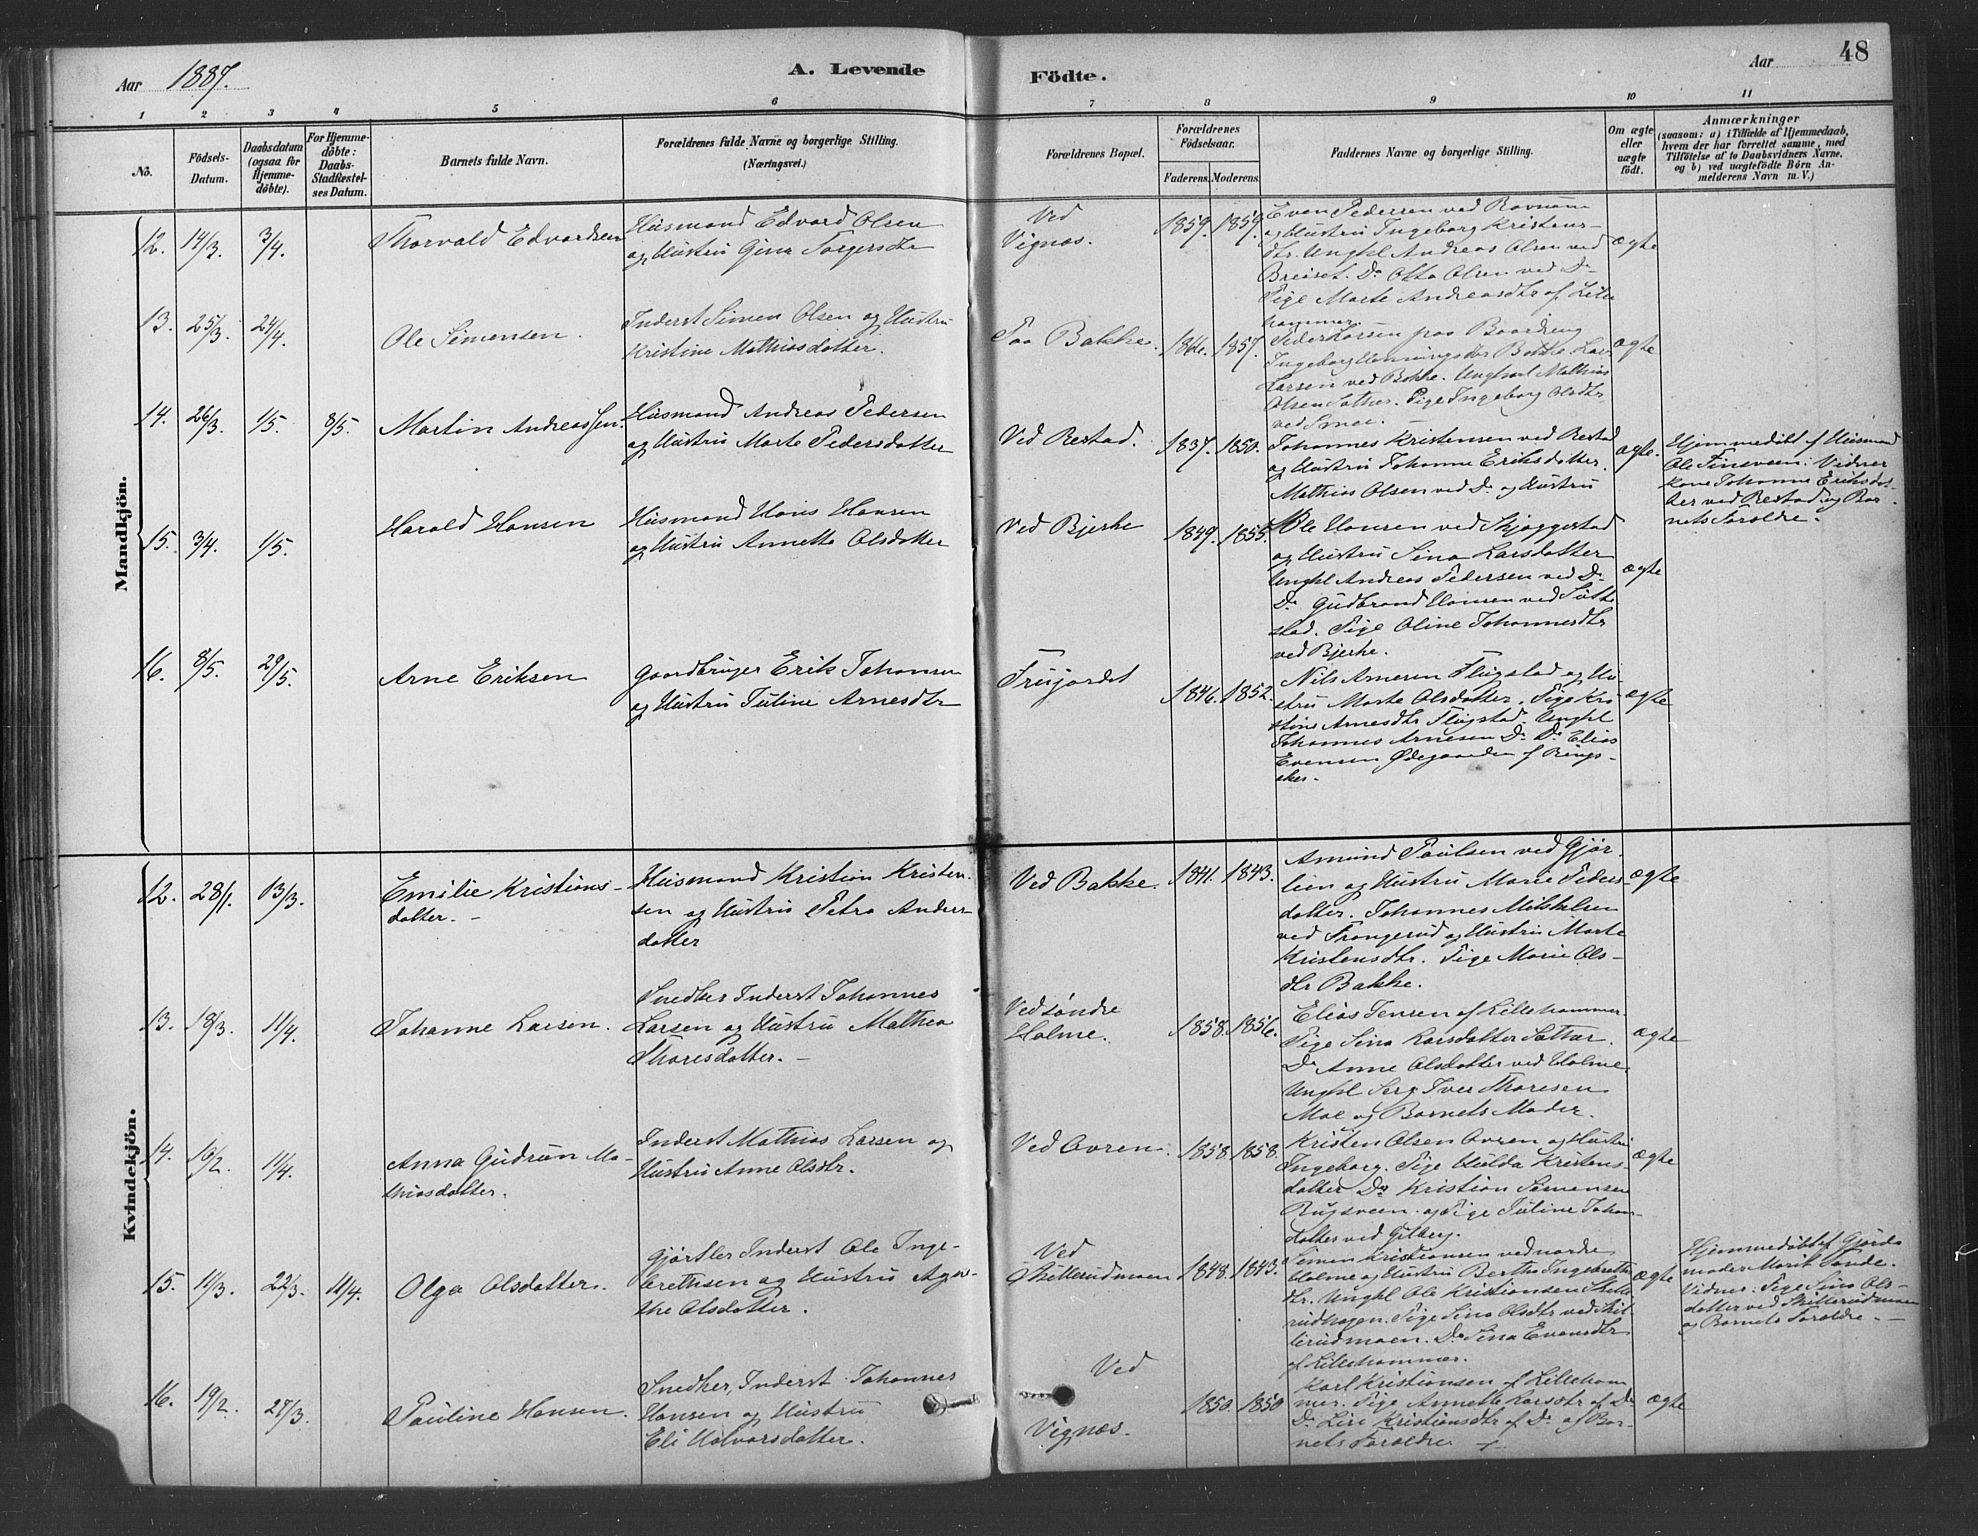 Aar 1887. A. Levende Födte. Aar 48
1 2 3 4 5 6 7 8 9 10 11
No. Födsels-Datum. Daabsdatum (ogsaa for Hjemme-döbte). For Hjemme-döbte: Daabs-Stadfæstel-ses Datum. Barnets fulde Navn. Forældrenes fulde Navne og borgerlige Stilling. (Næringsvei.) Forældrenes Bopæl. Forældrenes Födselsaar. Faderens. Moderens. Faddernes Navne og borgerlige Stilling. Om ægte eller uægte födt. Anmærkninger (saasom: a) i Tilfælde af Hjemmedaab, hvem der har forrettet samme, med Tilföielse af to Daabsvidners Navne, og b) ved uægtefödte Börn An-melderens Navn m. V.)
Mandkjön.
12. 14/3. 3/4. Thorvald Edvardsen
Husmand Edvard Olsen
og Hustru Gina
Ved
Vignæs.
1859. 1859.
Even Pedersen ved
og Hustru Ingeborg Kristens-
dtr. Unghl Andreas Olsen ved
Breiset. Do Otto Olsen ved Do
Pige Marte Andreasdtr af Lille
hammer.
ægte
13. 25/3. 24/4. Ole Simensen.
Inderst Simen Olsen og Hustru
Kristine Mathiasdatter.
Paa Bakke.
1857.
Peder Larsen paa
Ingeborg Henningsdtr Bakke. Lars
Larsen ved Bakke. Ungkarl Mathias
Olsen Sother. Pige Ingeborg Olsdtr
ved
ægte
14. 26/3. 1/5. 8/5. Martin Andreassen.
Husmand Andreas Pedersen
og Hustru Marte Pedersdatter
Ved Restad.
1837. 1850.
Johannes Kristensen ved Restad
og Hustru Johanne Eriksdatter.
Mathias Olsen ved Do og Hustru
ægte.
Hjemmedöbt af Husmand
Ole Finsveen. Vidner
Kone Johanne Eriksdat-
ter ved Restad og Bar-
nets Forældre.
15. 3/4. 1/5. Harald Hansen
Husmand Hans Hansen
og Hustru Annette Olsdatter
Ved Bjerke
1849. 1855.
Ole Hansen ved Skjæggestad
og Hustru Sina Larsdatter
Unghl Andreas Pedersen ved Do
Do Gudbrand Hansen ved
stad. Pige Oline Johannesdtr
ved Bjerke.
ægte
16. 8/5. 29/5. Arne Eriksen
Gaardbruger Erik Johansen
og Hustru Juline Arnesdtr
Trujordet
1846. 1852.
Nils Arnesen Flugstad og Hu-
stru Marte Olsdatter. Pige Kri-
stine Arnesdtr Flugstad. Unghl
Johannes Arnesen Do. Do Elias
Evensen Ødegaarden af Rings-
aker.
ægte
Kvindekjön.
12. 28/1. 13/3. Emilie Kristians-
datter. -
Husmand Kristian Kristen-
sen og Hustru Petra Anders-
datter
Ved Bakke.
1841. 1843.
Amund Paulsen ved Gjør-
lien og Hustru Marie Peders-
datter. Johannes Mikkelsen
ved Prangerud og Hustru Marte
Kristensdtr. Pige Marie Ols-
dtr Bakke.
ægte
13. 18/3. 11/4. Johanne Larsen.
Snedker Inderst Johannes
Larsen og Hustru Mathea
Thoresdatter. -
Ved søndre
Holme.
1858. 1856.
Elias Jensen af Lillehammer.
Pige Sina Larsdatter Sother.
Do Anne Olsdatter ved Holme.
Unghl Serg Iver Thoresen
Moe og Barnets Moder.
ægte
14. 16/2. 11/4. Anna Gudrun Ma-
thiasdatter.
Inderst Mathias Larsen og
Hustru Anne Olsdtr.
Ved Ovren.
1858. 1858.
Kristen Olsen Ovren og Hustru
Ingeborg. Pige Hulda Kristens-
datter Do Kristian Simensen
Rugsveen. og Pige Juline Johan-
datter ved Gilberg.
ægte
15. 11/3. 22/3. 11/4. Olga Olsdatter.
Gjørtler Inderst Ole Inge-
brethsen og Hustru
Olsdatter.
Ved
Skillerudmoen
1848. 1843.
Simen Kristiansen ved nordre
Holme og Hustru Berthe Ingebreths
dtr. Unghl Ole Kristiansen Skille-
rudhagen. Pige Sina Olsdtr ved Skil-
lerudmoen. Do Sina Evensdtr
af Lillehammer.
ægte
Hjemmedöbt af Gjorde-
moder Marit Tande.
Vidner. Pige Sina Ols-
datter ved Skillerudmoen
og Barnets Forældre. -
16. 19/2. 27/3. Pauline Hansen.
Snedker, Inderst Johannes
Hansen og Hustru
Eli Halvorsdatter.
Ved
Vignæs.
1850. 1850
Karl Kristiansen af Lilleham
mer. Pige Annette Larsdtr af Do
Do Lise Kristiansdtr af Do og Bar-
nets Forældre
ægte